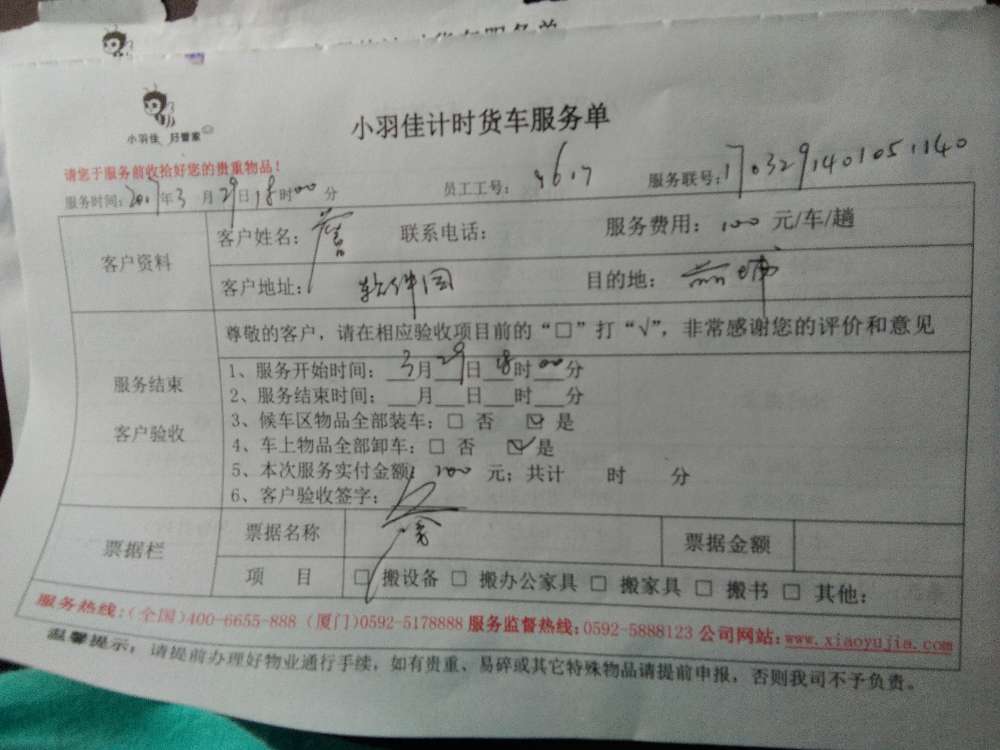 小羽佳 好管家
小羽佳计时货车服务单
请您于服务前收拾好您的贵重物品！
服务时间：2017年3月29日18时00分 员工工号： 服务联号：1703291401051140
客户资料
客户姓名： 联系电话： 服务费用：100元/车/趟
客户地址：软件园 目的地：
尊敬的客户，请在相应验收项目前的“□”打“√”，非常感谢您的评价和意见
服务结束
客户验收
1、服务开始时间：3月29日18时00分
2、服务结束时间：___月___日___时___分
3、候车区物品全部装车：□ 否 ☑ 是
4、车上物品全部卸车：□ 否 ☑ 是
5、本次服务实付金额：100元；共计 时 分
6、客户验收签字：
票据栏
票据名称 票据金额
项 目 □ 搬设备 □ 搬办公家具 □ 搬家具 □ 搬书 □ 其他：
服务热线：（全国）400-6655-888（厦门）0592-5178888 服务监督热线：0592-5888123 公司网站：www.xiaoyujia.com
温馨提示：请提前办理好物业通行手续，如有贵重、易碎或其它特殊物品请提前申报，否则我司不予负责。